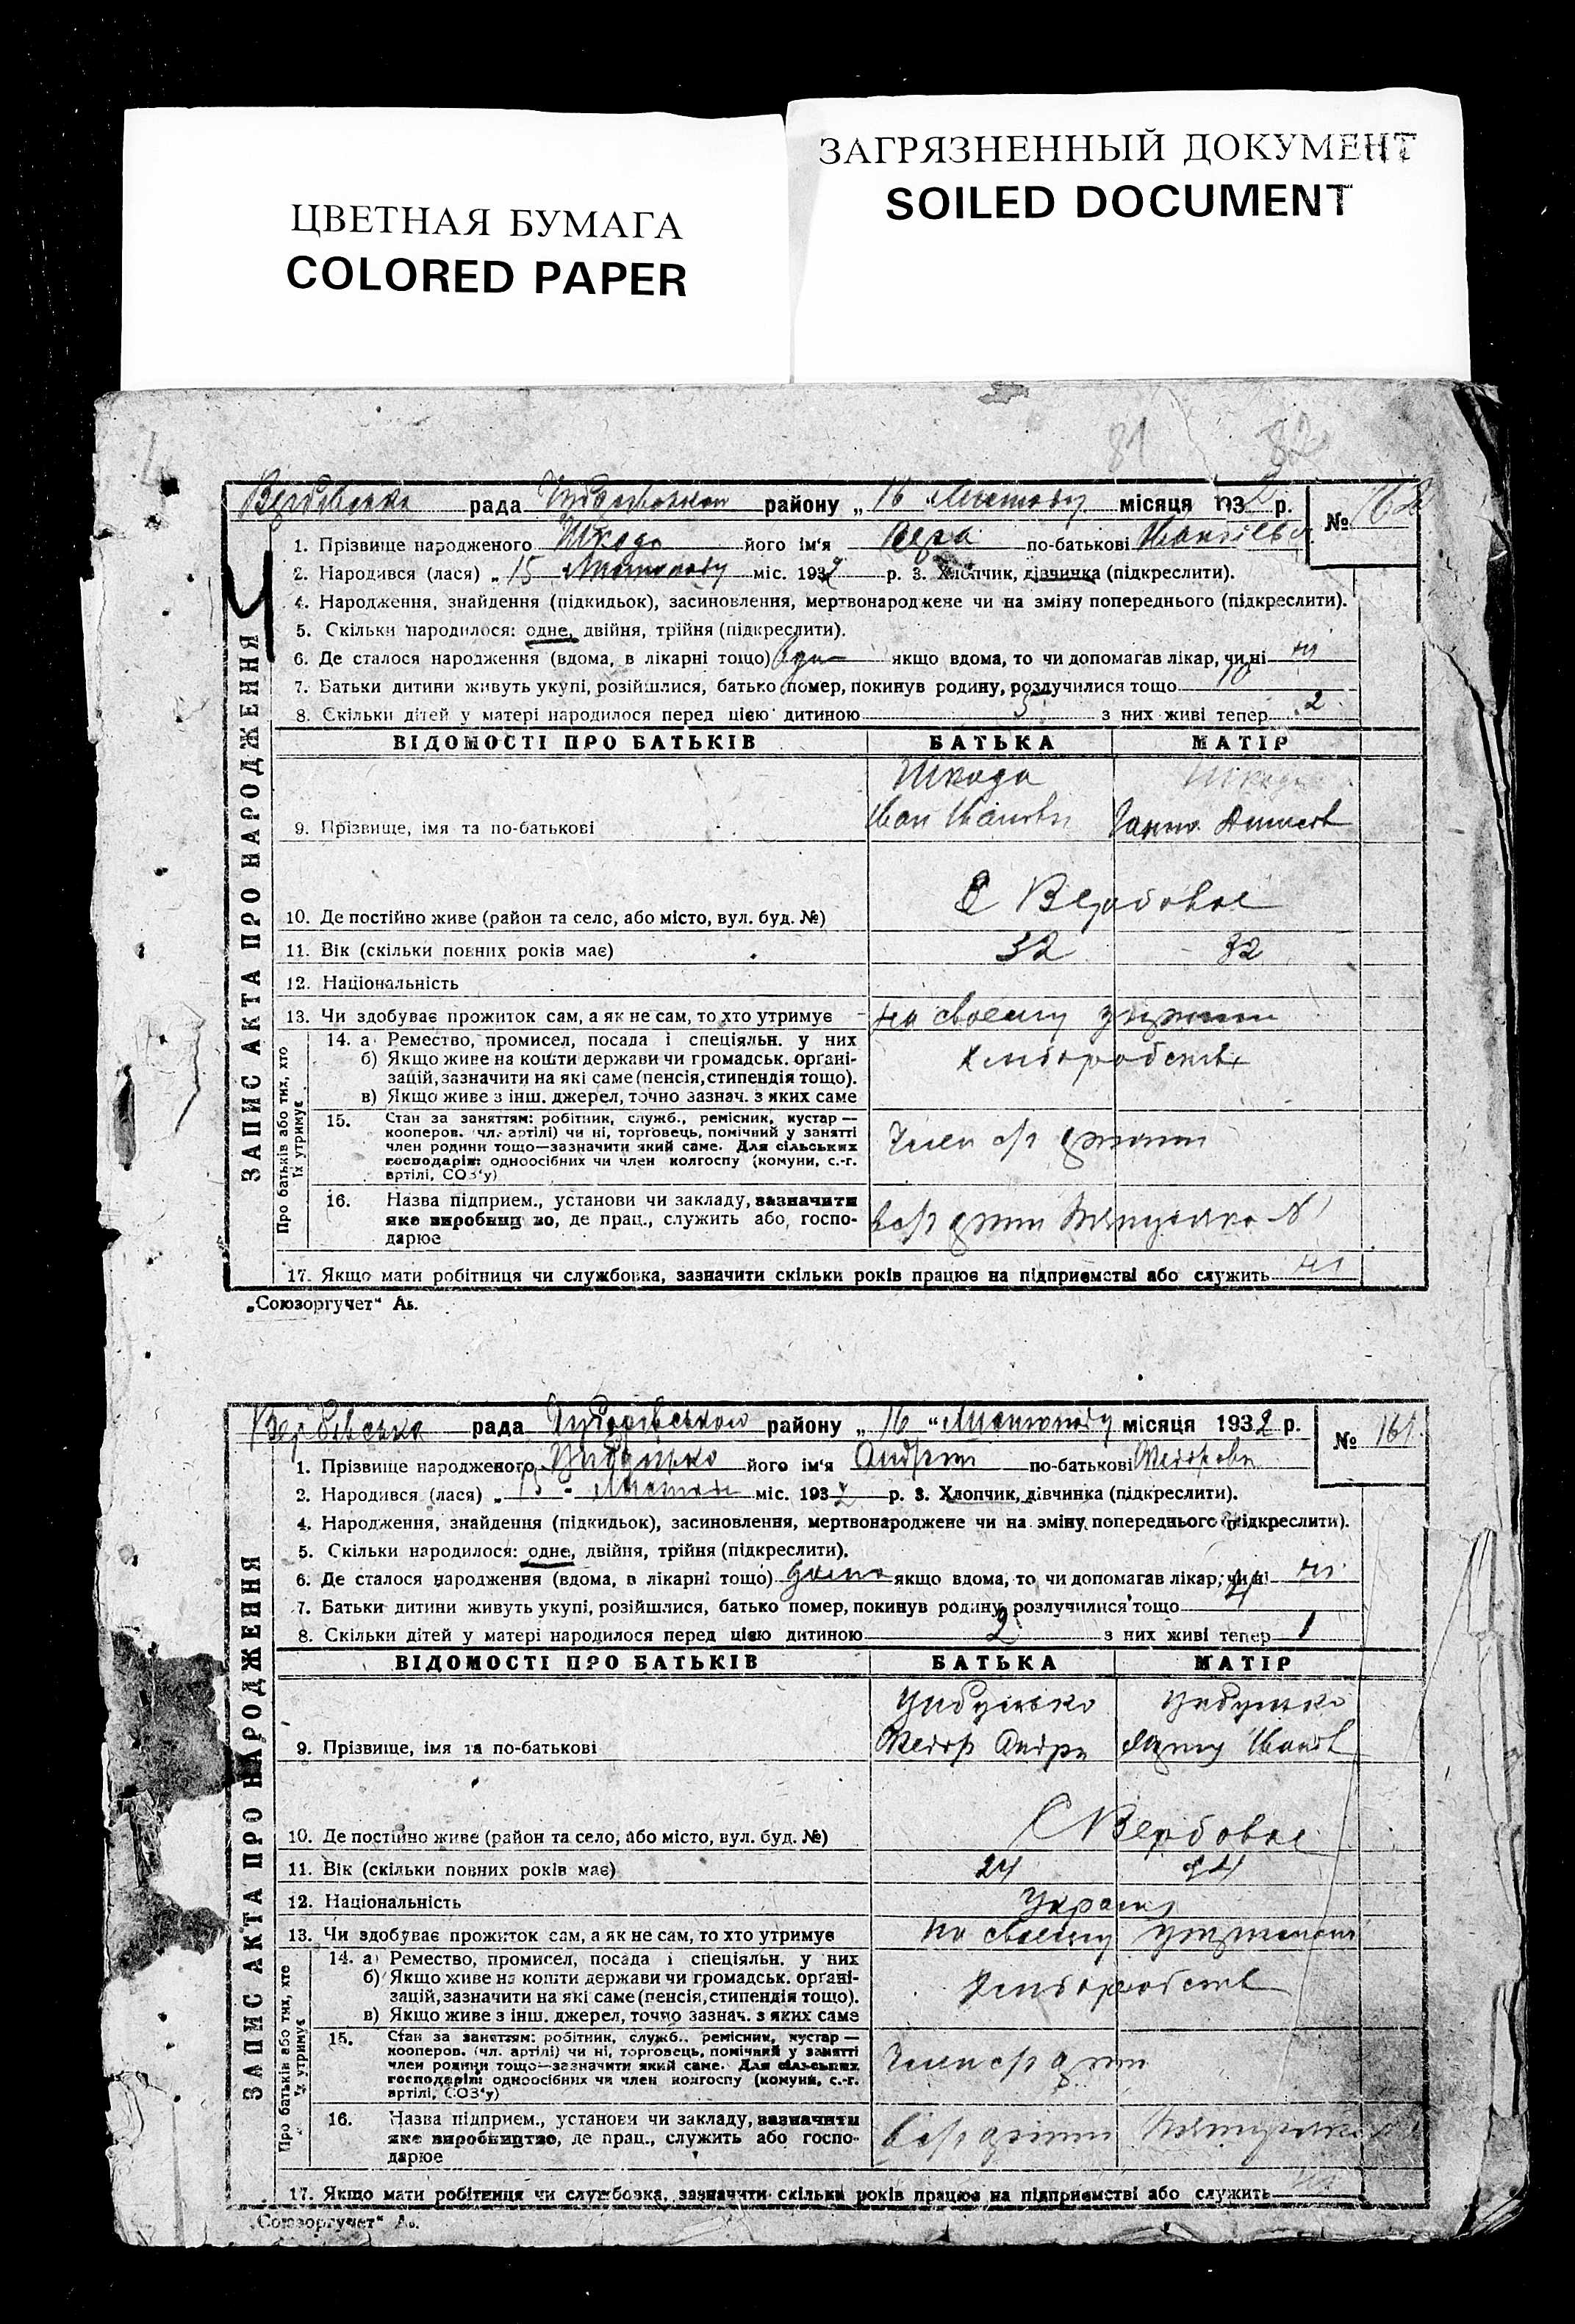 ЦВЕТНАЯ БУМАГА
COLORED PAPER
ЗАГРЯЗНЕННЫЙ ДОКУМЕНТ
SOILED DOCUMENT
81 82
рада району „ 16 " Листопаду місяця 1932 р. № 162
ЗАПИС АКТА ПРО НАРОДЖЕННЯ
1. Прізвище народженого Шкода його ім'я Вера по-батькові
2. Народився (лася) „ 15 міс. 1932 р. 3. Хлопчик, дівчинка (підкреслити).
4. Народження, знайдення (підкидьок), засиновлення, мертвонароджене чи на зміну попереднього (підкреслити).
5. Скільки народилося: одне, двійня, трійня (підкреслити).
6. Де сталося народження (вдома, в лікарні тощо) якщо вдома, то чи допомагав лікар, чи ні ні
7. Батьки дитини живуть укупі, розійшлися, батько помер, покинув родину, розлучилися тощо
8. Скільки дітей у матері народилося перед цією дитиною 5 з них живі тепер 2
ВІДОМОСТІ ПРО БАТЬКІВ БАТЬКА МАТІР
Шкода Шкода
9. Прізвище, імя та по-батькові Іван Іванов Ганна
10. Де постійно живе (район та село, або місто, вул. буд. №) С Вербовое
11. Вік (скільки повних років має) 32 32
12. Національність
13. Чи здобуває прожиток сам, а як не сам, то хто утримує на своему
Про батьків або тих, хто їх утримує
14. а Ремество, промисел, посада і спеціяльн. у них
б) Якщо живе на кошти держави чи громадськ. органі-
зацій, зазначити на які саме (пенсія, стипендія тощо).
в) Якщо живе з інш. джерел, точно зазнач. з яких саме
Хлиборобств
15. Стан за заняттям: робітник, служб., ремісник, кустар —
кооперов. (чл. артілі) чи ні, торговець, помічний у занятті
член родини тощо—зазначити який саме. Для сільських
господарів: одноосібних чи член колгоспу (комуни, с.-г.
артілі, СОЗ'у)
Член с/г
16. Назва підприєм., установи чи закладу, зазначити
яке виробництво, де прац., служить або, госпо-
дарює
17. Якщо мати робітниця чи службовка, зазначити скільки років працює на підприємстві або служить ні
„Союзоргучет" Ль.
Вербівська рада району „ 16 " Листопаду місяця 1932 р. № 161
ЗАПИС АКТА ПРО НАРОДЖЕННЯ
1. Прізвище народженого його ім'я Андрій по-батькові
2. Народився (лася) „ 15 " міс. 1932 р. 3. Хлопчик, дівчинка (підкреслити).
4. Народження, знайдення (підкидьок), засиновлення, мертвонароджене чи на зміну попереднього (підкреслити).
5. Скільки народилося: одне, двійня, трійня (підкреслити).
6. Де сталося народження (вдома, в лікарні тощо) дома якщо вдома, то чи допомагав лікар, чи ні ні
7. Батьки дитини живуть укупі, розійшлися, батько помер, покинув родину, розлучилися тощо
8. Скільки дітей у матері народилося перед цією дитиною 2 з них живі тепер 1
ВІДОМОСТІ ПРО БАТЬКІВ БАТЬКА МАТІР
9. Прізвище, імя та по-батькові Андри Іванов
10. Де постійно живе (район та село, або місто, вул. буд. №) С Вербовое
11. Вік (скільки повних років має) 24 24
12. Національність
13. Чи здобуває прожиток сам, а як не сам, то хто утримує на своему
Про батьків або тих, хто їх утримує
14. а) Ремество, промисел, посада і спеціяльн. у них
б) Якщо живе на кошти держави чи громадськ. органі-
зацій, зазначити на які саме (пенсія, стипендія тощо).
в) Якщо живе з інш. джерел, точно зазнач. з яких саме
Хлиборобств
15. Стан за заняттям: робітник, служб., ремісник, кустар —
кооперов. (чл. артілі) чи ні, торговець, помічний у занятті
член родини тощо—зазначити який саме. Для сільських
господарів: одноосібних чи член колгоспу (комуни, с.-г.
артілі, СОЗ'у)
Член с/г
16. Назва підприєм., установи чи закладу, зазначити
яке виробництво, де прац., служить або госпо-
дарює
17. Якщо мати робітниця чи службовка, зазначити скільки років працює на підприємстві або служить
„Союзоргучет" Ль.